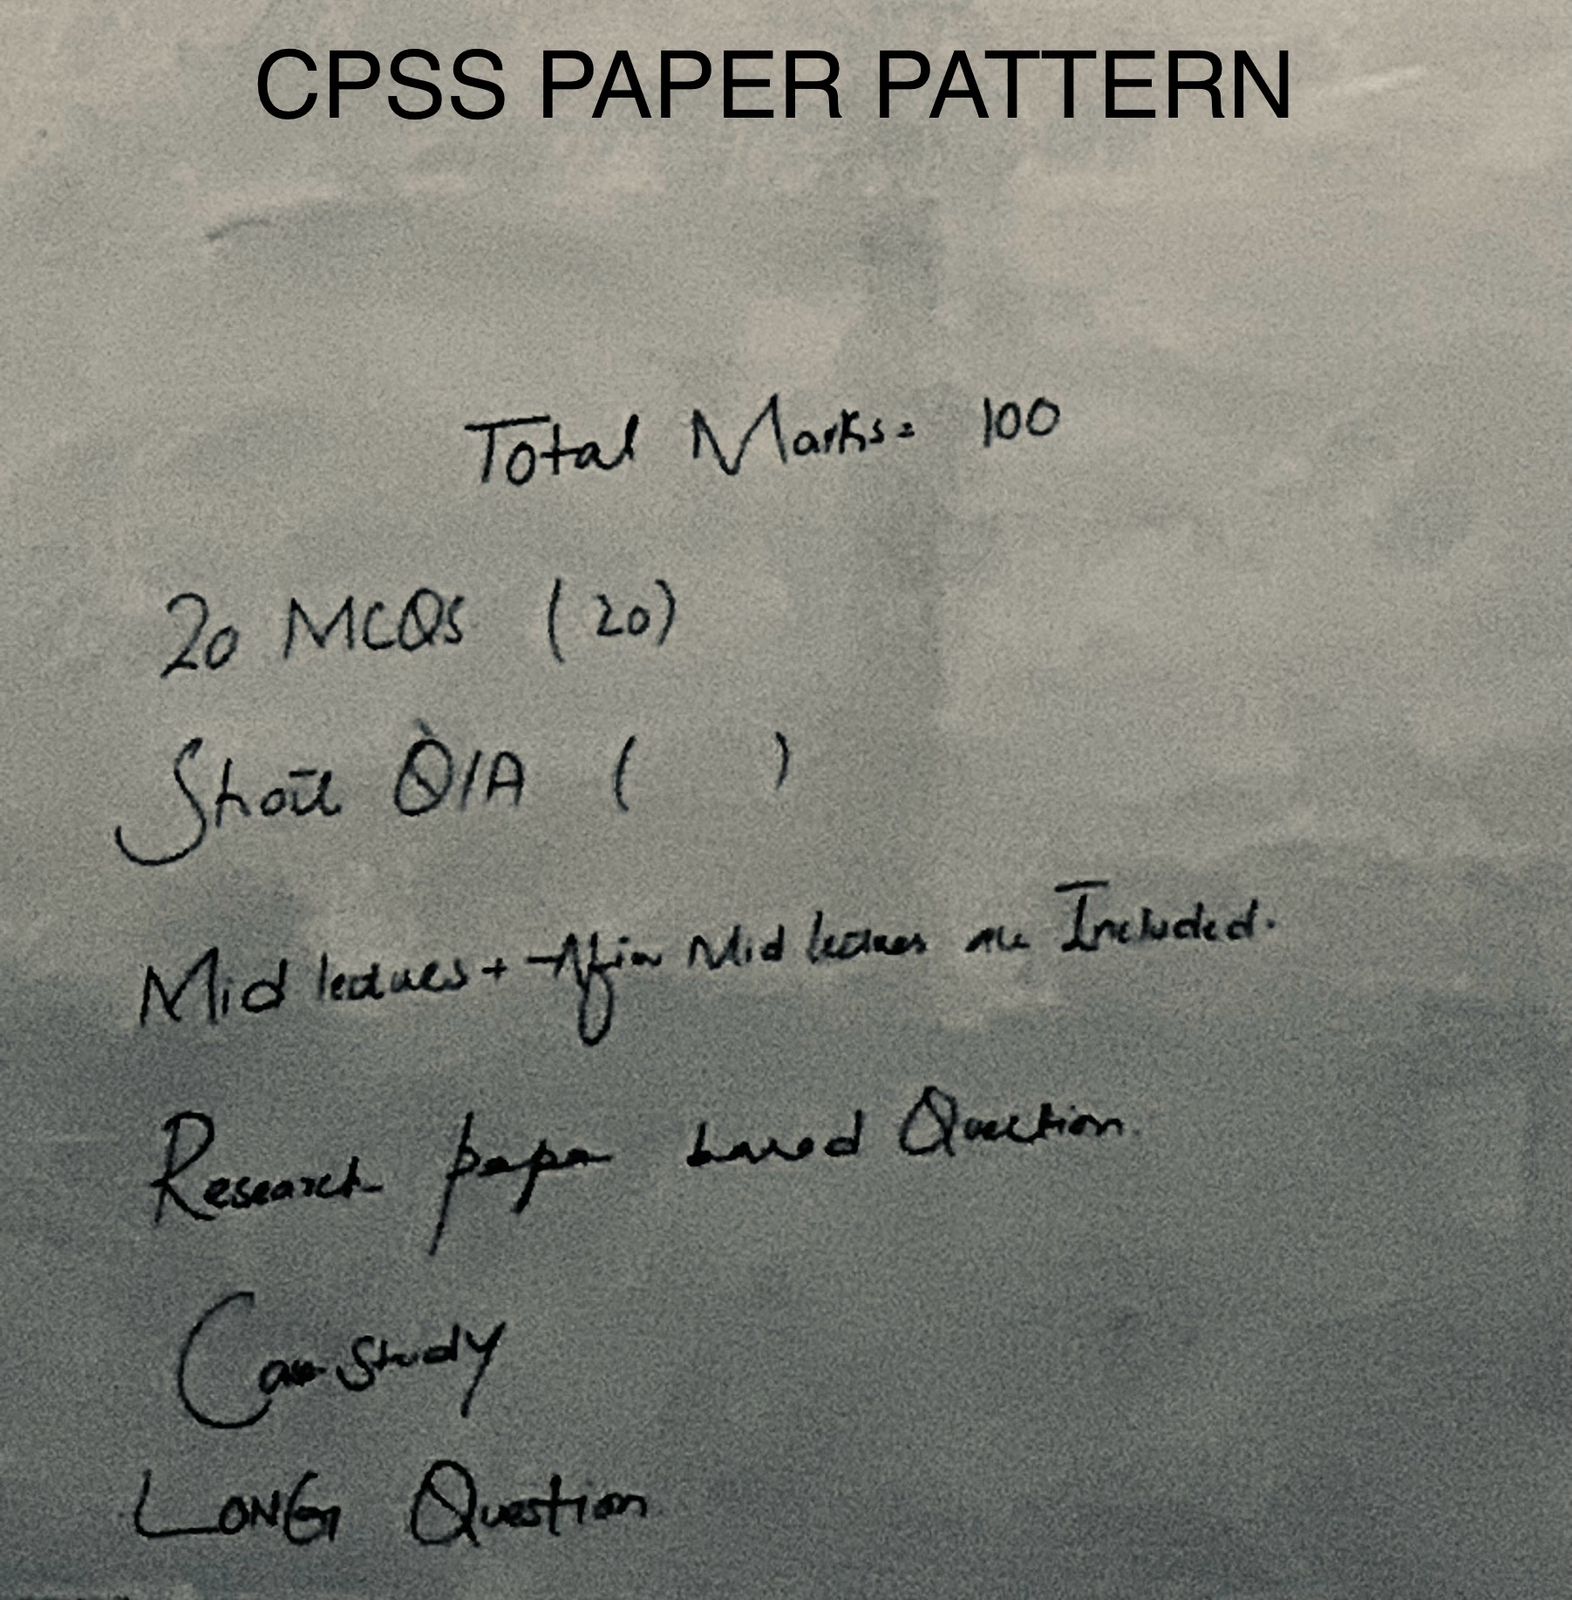 CPSS PAPER PATTERN
Total Marks= 100
20 MCQs (20)
Short Q/A ( )
Mid lectures + After Mid lectures are Included.
Research paper based Question.
Case study
LONG Question